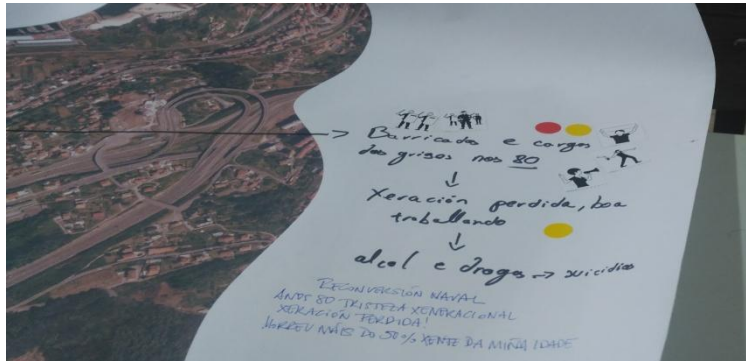 Barricadas e cargas
dos grises nos 80
Xeración perdida, boa
traballando
alcol e drogas → suicidios
RECONVERSIÓN NAVAL
ANOS 80 TRISTEZA XENERACIONAL
XERACIÓN PERDIDA!
MORREU MÁIS DO 50% XENTE DA MIÑA IDADE